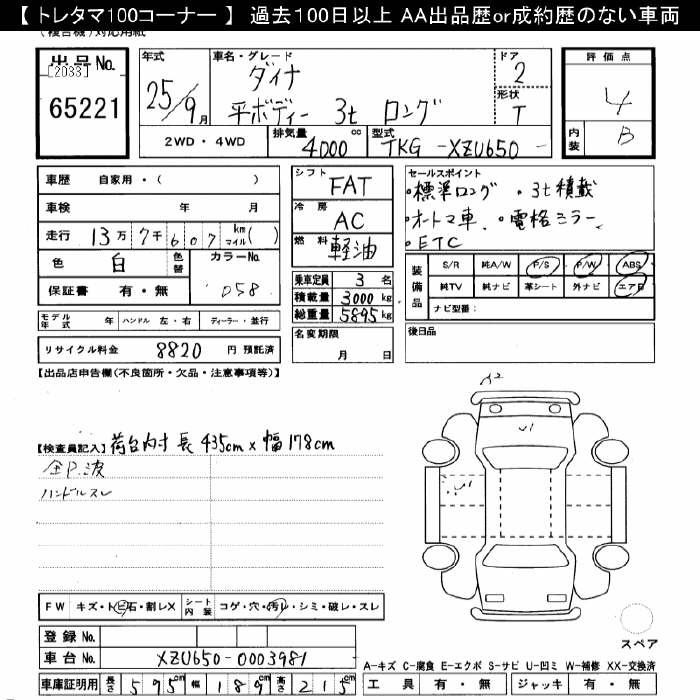 【 トレタマ100コーナー 】 過去100日以上 AA出品歴or成約歴のない車両
出品No.
[2033]
65221
年式
25/9月
車名・グレード
ダイナ
平ボディー 3t ロング
ドア
2
形状
T
評価点
4
内装
B
2WD・4WD
排気量
4000cc
型式
TKG-XZU650
車歴 自家用・( )
車検 年 月
走行 13万7千607 km マイル( )
色 白 色替 カラーNo. 058
保証書 有・無
シフト FAT
冷房 AC
燃料 軽油
乗車定員 3名
積載量 3000kg
総重量 5895kg
セールスポイント
・標準ロング ・3t積載
・オートマ車 ・電格ミラー
・ETC
装備品
S/R 純A/W P/S P/W ABS
純TV 純ナビ 革シート 外ナビ エアB
ナビ型番:
モデル年式 年 ハンドル 左・右 ディーラー・並行
リサイクル料金 8820 円 預託済
名変期限 月 日
後日品
【出品店申告欄(不良箇所・欠品・注意事項等)】
【検査員記入】 荷台内寸 長 435cm × 幅 178cm
ハンドルスレ
FW キズ・トビ石・割レX シート内装 コゲ・穴・汚レ・シミ・破レ・スレ
登録No.
車台No. XZU650-0003981
車庫証明用 長さ 595cm 幅 189cm 高さ 215cm
スペア
A-キズ C-腐食 E-エクボ S-サビ U-凹ミ W-補修 XX-交換済
工具 有・無 ジャッキ 有・無